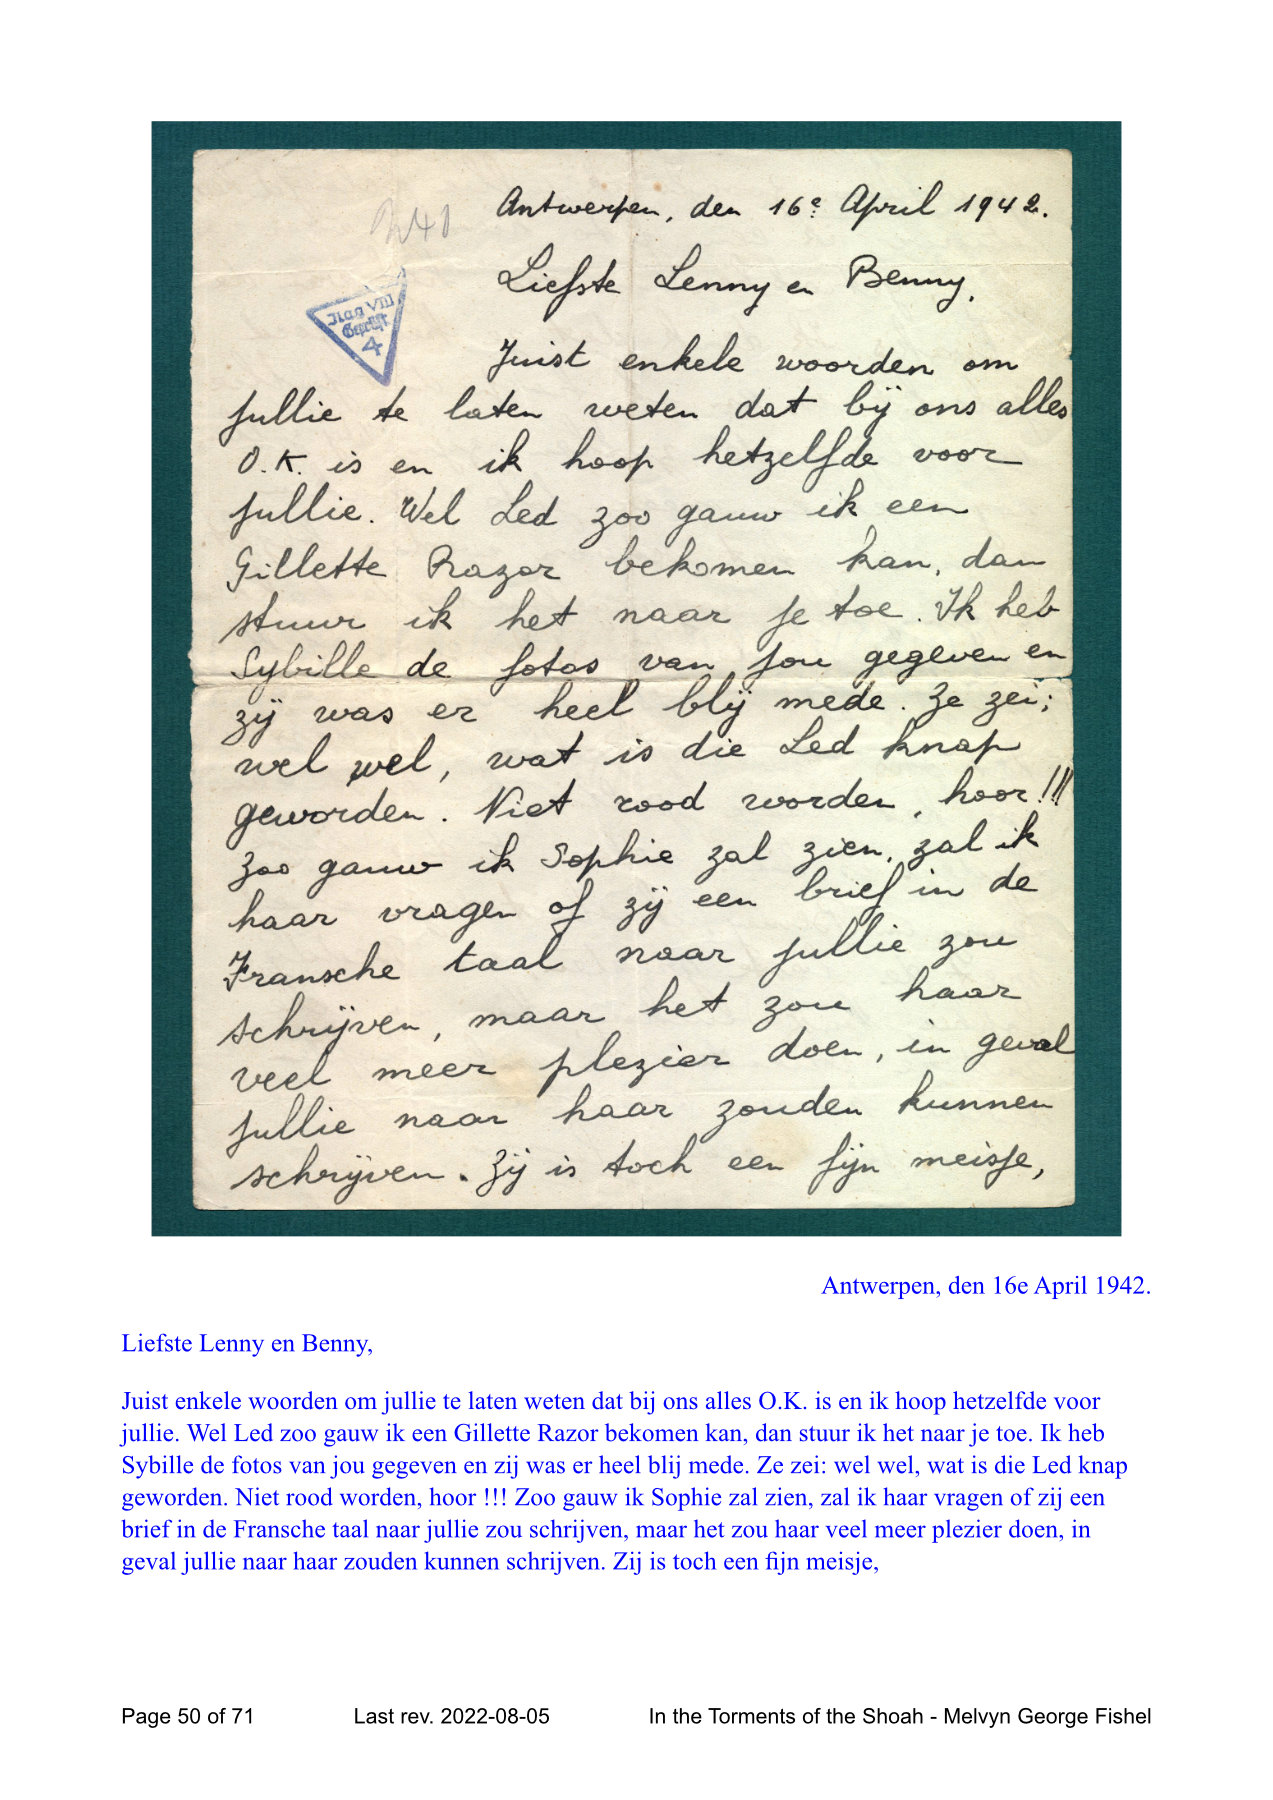 241
Antwerpen, den 16e April 1942.
Liefste Lenny en Benny,
Ilag VIII
Geprüft
4
Juist enkele woorden om
jullie te laten weten dat bij ons alles
O.K. is en ik hoop hetzelfde voor
jullie. Wel Led zoo gauw ik een
Gillette Razor bekomen kan, dan
stuur ik het naar je toe. Ik heb
Sybille de fotos van jou gegeven en
zij was er heel blij mede. Ze zei;
wel wel, wat is die Led knap
geworden. Niet rood worden, hoor!!!
Zoo gauw ik Sophie zal zien, zal ik
haar vragen of zij een brief in de
Fransche taal naar jullie zou
schrijven, maar het zou haar
veel meer plezier doen, in geval
jullie naar haar zouden kunnen
schrijven. Zij is toch een fijn meisje,
Antwerpen, den 16e April 1942.
Liefste Lenny en Benny,
Juist enkele woorden om jullie te laten weten dat bij ons alles O.K. is en ik hoop hetzelfde voor
jullie. Wel Led zoo gauw ik een Gillette Razor bekomen kan, dan stuur ik het naar je toe. Ik heb
Sybille de fotos van jou gegeven en zij was er heel blij mede. Ze zei: wel wel, wat is die Led knap
geworden. Niet rood worden, hoor !!! Zoo gauw ik Sophie zal zien, zal ik haar vragen of zij een
brief in de Fransche taal naar jullie zou schrijven, maar het zou haar veel meer plezier doen, in
geval jullie naar haar zouden kunnen schrijven. Zij is toch een fijn meisje,
Page 50 of 71 Last rev. 2022-08-05 In the Torments of the Shoah - Melvyn George Fishel